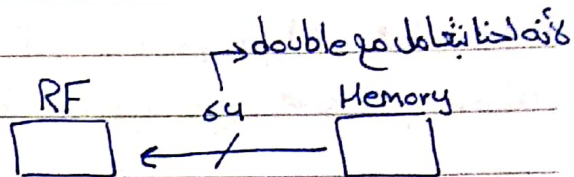 لأنه احنا بنتعامل مع double
RF 64 Memory